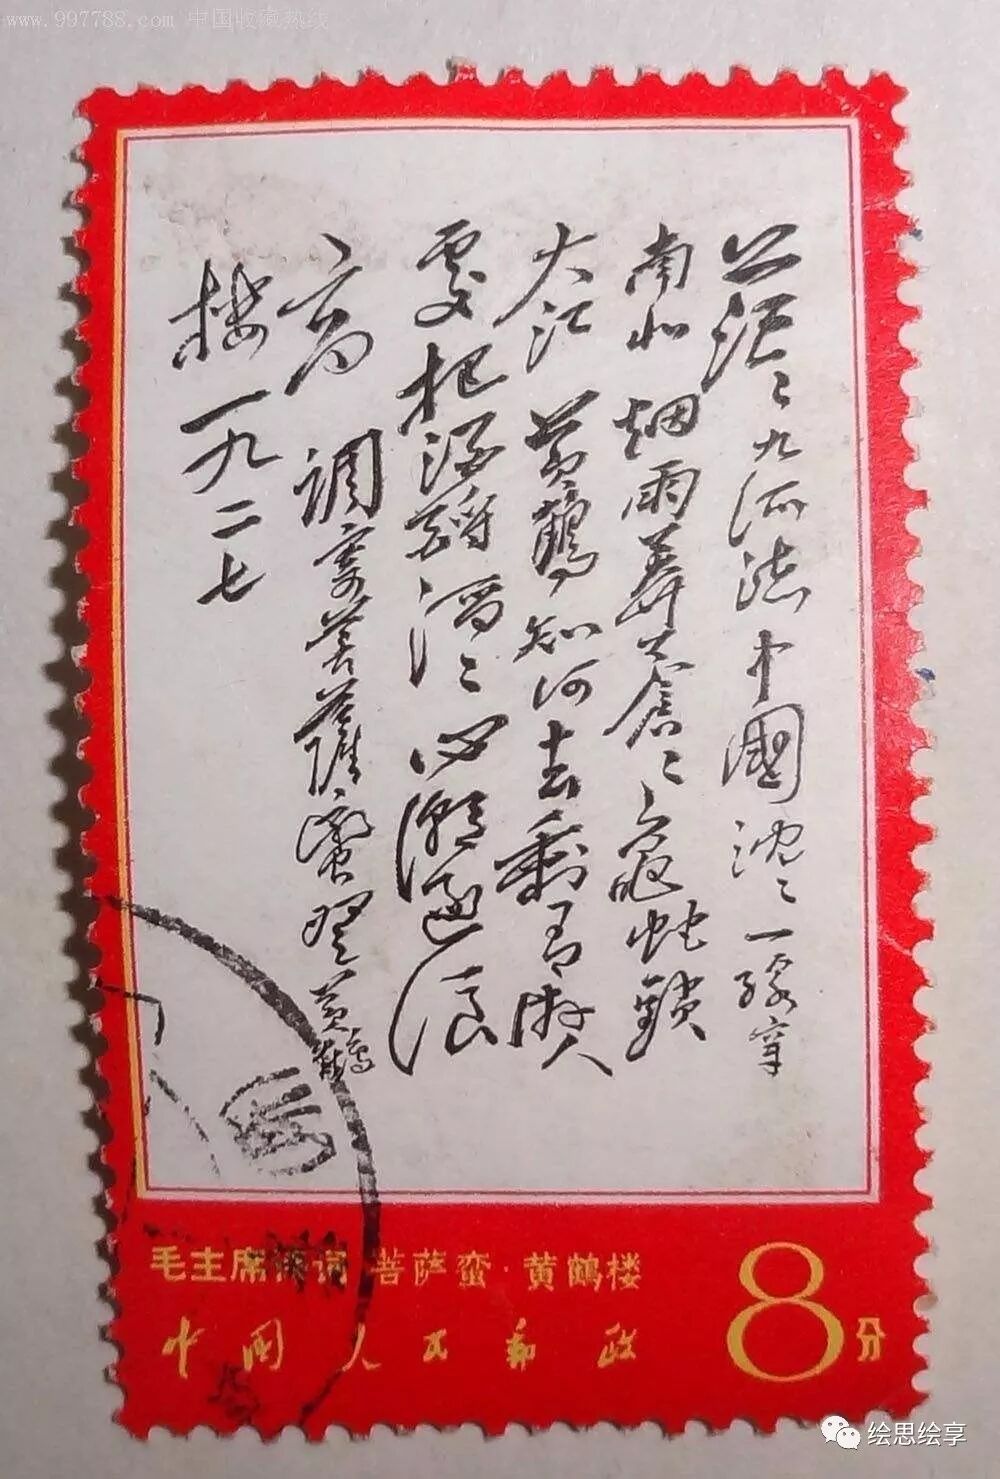 www.997788.com 中国收藏热线
茫〻九派流中國沈〻一線穿
南北烟雨莽蒼〻龜蛇鎖
大江 黄鶴知何去剩有游人
處 把酒酹滔〻心潮逐浪
高 調寄菩薩蠻 登黄鶴
樓 一九二七
毛主席诗词 菩萨蛮·黄鹤楼
中国人民邮政
8分
绘思绘享